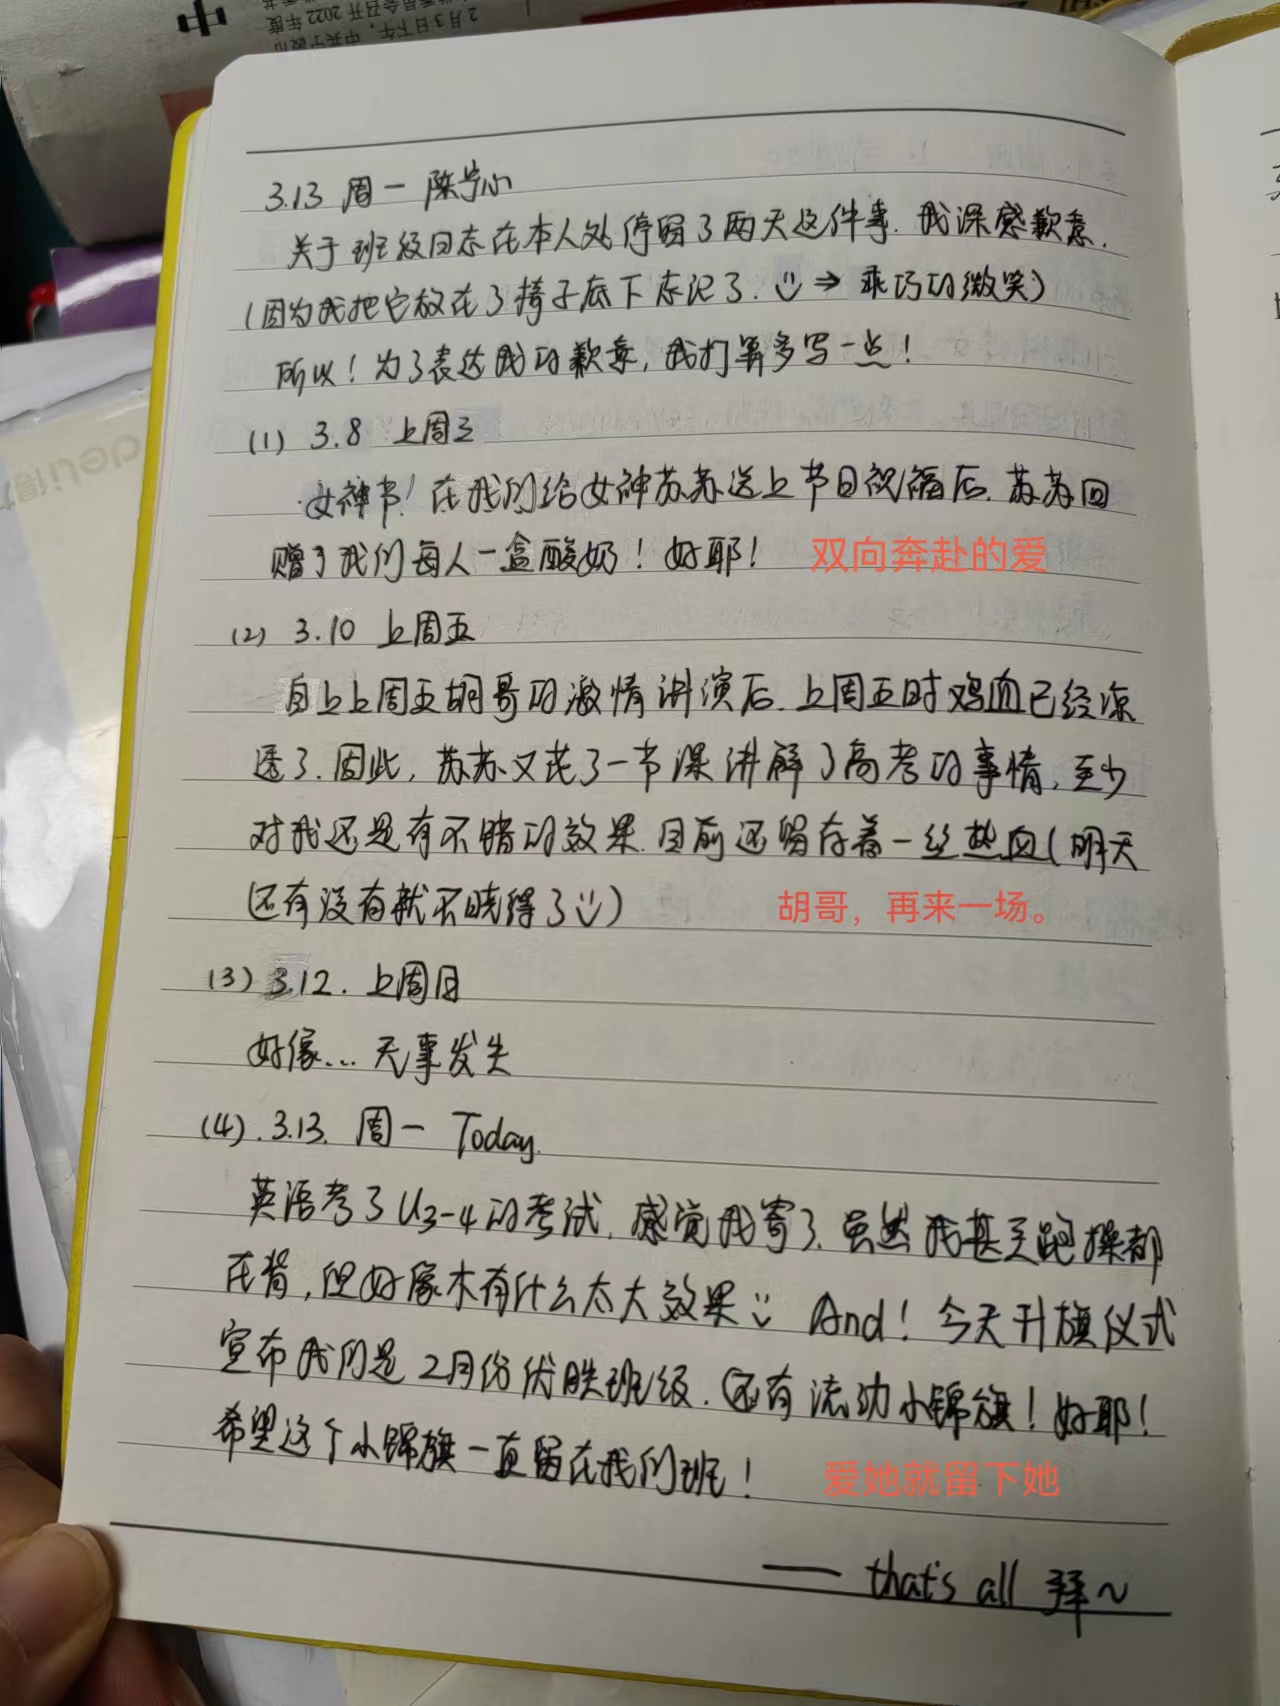 中
2月3日下午，中共宁波市
委员会召开2022年度
deli得力
3.13 周一 陈宁心
关于班级日志在本人处停留了两天这件事.我深感歉意.
(因为我把它放在了椅子底下忘记了.⇒ 乖巧的微笑)
所以！为了表达我的歉意,我打算多写一点！
(1) 3.8 上周三
女神节！在我们给女神苏苏送上节日祝福后.苏苏回
赠了我们每人一盒酸奶！好耶！ 双向奔赴的爱
(2) 3.10 上周五
自上上周五胡哥的激情讲演后.上周五时鸡血已经凉
透了.因此,苏苏又花了一节课讲解了高考的事情,至少
对我还是有不错的效果.目前还留存着一丝热血(明天
还有没有就不晓得了) 胡哥，再来一场。
(3) 3.12. 上周日
好像... 无事发失
(4).3.13. 周一 Today.
英语考了U3-4的考试.感觉我寄了.虽然我甚至跑操都
在背,但好像木有什么太大效果 And！今天升旗仪式
宣布我们是2月份优胜班级.还有流动小锦旗！好耶！
希望这个小锦旗一直留在我们班！ 爱她就留下她
—— that's all 拜~